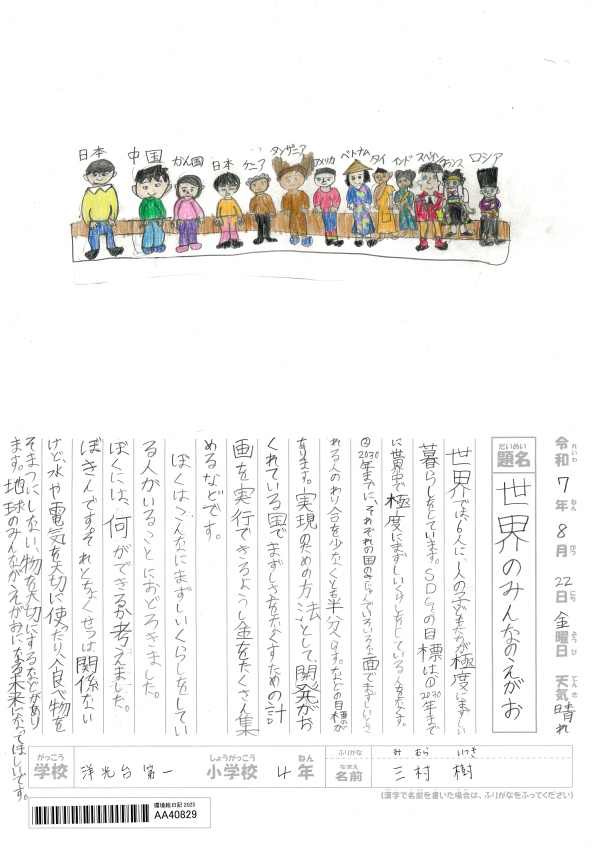 日本
中国
かん国
日本
ケニア
タンザニア
アメリカ
ベトナム
タイ
インド
スペイン
フランス
ロシア
令和7年8月22日金曜日 天気晴れ
れいわ ねん がつ にち ようび てんき
だいめい
題名
世界のみんなのえがお
世界では6人に1人の子どもたちが極度にまずしい
暮らしをしています。SDGsの目標は①2030年まで
に世界中で極度にまずしいくらしをしている人をなくす。
②2030年までに、それぞれの国の
いろいろな面でまずしいとさ
れる人のわり合を少なくとも半分へらす。などの目標が
あります。実現のための方法として、開発がお
くれている国でまずしさをなくすための計
画を実行できるようお金をたくさん集
めるなどです。
ぼくはこんなにまずしいくらしをしてい
る人がいることにおどろきました。
ぼくには、何ができるか考えました。
ぼきんです。それとちょくせつは関係ない
けど、水や電気を大切に使ったり食べ物を
そまつにしない、物を大切にするなどがあり
ます。地球のみんながえがおになる未来になってほしいです。
がっこう しょうがっこう ねん ふりがな み むら いつき
学校 洋光台第一 小学校 4年 なまえ 名前 三村 樹
(漢字で名前を書いた場合は、ふりがなをふってください)
環境絵日記 2025
AA40829